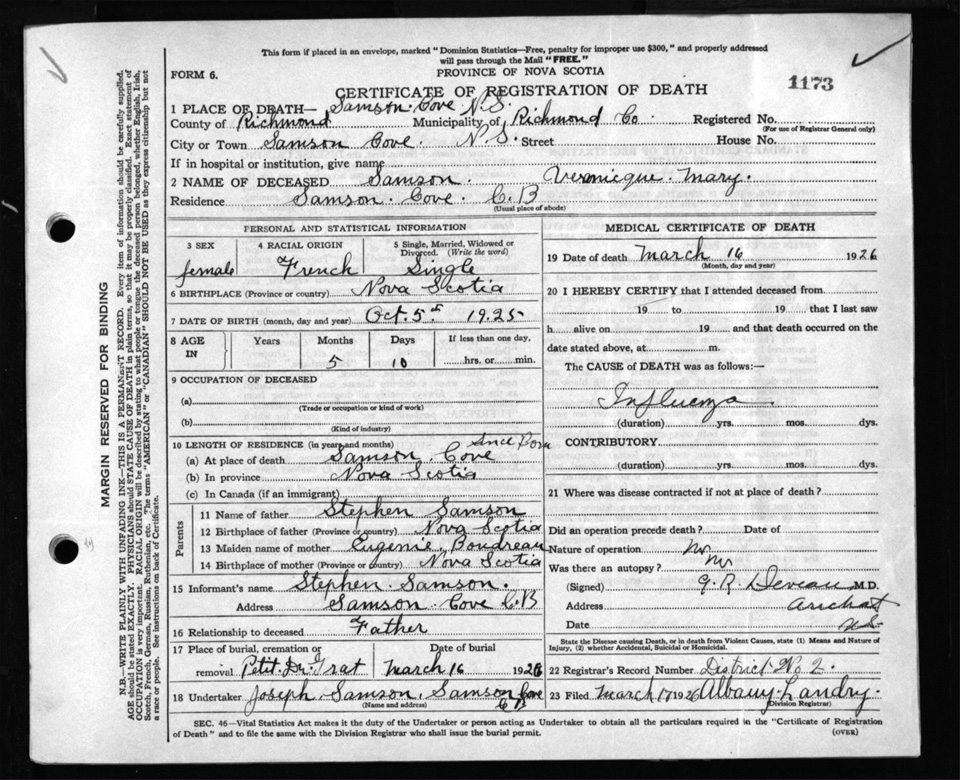 This form if placed in an envelope, marked "Dominion Statistics—Free, penalty for improper use $300," and properly addressed
will pass through the Mail "FREE."
FORM 6.
PROVINCE OF NOVA SCOTIA
1173
CERTIFICATE OF REGISTRATION OF DEATH
1 PLACE OF DEATH— Samson Cove N.S.
County of Richmond Municipality of Richmond Co. Registered No.
(For use of Registrar General only)
City or Town Samson Cove. N.S. Street House No.
If in hospital or institution, give name
2 NAME OF DECEASED Samson. Veronique Mary.
Residence Samson Cove. C.B
(Usual place of abode)
PERSONAL AND STATISTICAL INFORMATION
3 SEX 4 RACIAL ORIGIN 5 Single, Married, Widowed or Divorced. (Write the word)
female French Single
6 BIRTHPLACE (Province or country) Nova Scotia
7 DATE OF BIRTH (month, day and year) Oct. 5th 1925
8 AGE IN Years Months Days If less than one day,
5 10 hrs. or min.
9 OCCUPATION OF DECEASED
(a)
(Trade or occupation or kind of work)
(b)
(Kind of industry)
10 LENGTH OF RESIDENCE (in years and months) Since Born
(a) At place of death Samson Cove
(b) In province Nova Scotia
(c) In Canada (if an immigrant)
Parents
11 Name of father Stephen Samson
12 Birthplace of father (Province or country) Nova Scotia
13 Maiden name of mother Eugenie Boudreau
14 Birthplace of mother (Province or country) Nova Scotia
15 Informant's name Stephen Samson.
Address Samson Cove C.B
16 Relationship to deceased Father
17 Place of burial, cremation or removal Date of burial
Petit De Grat March 16 1926
18 Undertaker Joseph Samson. Samson Cove C B
(Name and address)
MEDICAL CERTIFICATE OF DEATH
19 Date of death March 16 1926
(Month, day and year)
20 I HEREBY CERTIFY that I attended deceased from
19 to 19 that I last saw
h alive on 19 and that death occurred on the
date stated above, at m.
The CAUSE of DEATH was as follows:—
Influenza.
(duration) yrs. mos. dys.
CONTRIBUTORY.
(duration) yrs. mos. dys.
21 Where was disease contracted if not at place of death?
Did an operation precede death? Date of
Nature of operation no
Was there an autopsy? no
(Signed) G. R. Deveau M.D.
Address Arichat
Date N.S.
State the Disease causing Death, or in death from Violent Causes, state (1) Means and Nature of
Injury, (2) whether Accidental, Suicidal or Homicidal.
22 Registrar's Record Number District No 2.
23 Filed March 17 1926 Albany Landry.
(Division Registrar)
SEC. 46—Vital Statistics Act makes it the duty of the Undertaker or person acting as Undertaker to obtain all the particulars required in the "Certificate of Registration
of Death" and to file the same with the Division Registrar who shall issue the burial permit.
(OVER)
MARGIN RESERVED FOR BINDING
N.B.—WRITE PLAINLY WITH UNFADING INK—THIS IS A PERMANENT RECORD. Every item of information should be carefully supplied.
AGE should be stated EXACTLY. PHYSICIANS should STATE CAUSE OF DEATH in plain terms, so that it may be properly classified. Exact statement of
OCCUPATION is very important. RACIAL ORIGIN will be described by stating to what people or tongue the deceased person belonged, whether English, Irish,
Scotch, French, German, Russian, Ruthenian, etc. The terms "AMERICAN" or "CANADIAN" SHOULD NOT BE USED as they express citizenship but not
a race or people. See instructions on back of Certificate.